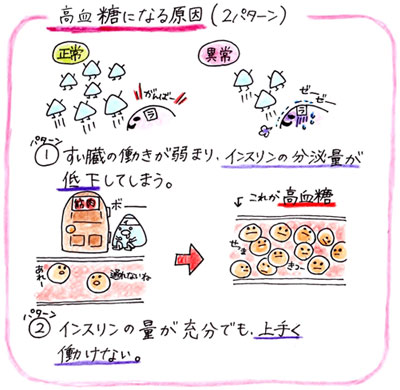 高血糖になる原因(2パターン)
正常
異常
がんばー
ゼーゼー
ラ
ラ
パターン
① すい臓の働きが弱まり、インスリンの分泌量が
低下してしまう。
筋肉
ボー
あれー
通れないね
↙これが高血糖
せっま
きっつー
パターン
② インスリンの量が充分でも、上手く
働けない。